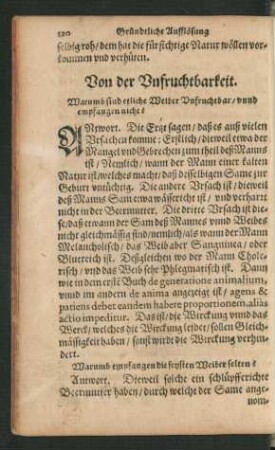 120 Gründtliche Aufflösung
selbig roh / dem hat die fürsichtige Natur wöllen vor-
kommen vnd verhüten.
Von der Vnfruchtbarkeit.
Warumb sind etliche Weiber Vnfruchtbar / vnnd
empfangen nicht?
ANtwort. Die Erzt sagen / daß es auß vielen
Vrsachen komme: Erstlich / dieweil etwa der
Mangel vnd Gebrechen zum theil deß Manns
ist / Nemlich / wann der Mann einer kalten
Natur ist / welches macht / daß desselbigen Same zur
Geburt vntüchtig. Die andere Vrsach ist / dieweil
deß Manns Sam etwa wässericht ist / vnd verharrt
nicht in der Beermutter. Die dritte Vrsach ist die-
se / daß etwann der Sam deß Mannes vnnd Weibes
nicht gleichmässig sind / nemlich / als wann der Mann
Melancholisch / das Weib aber Sanguinea / oder
Blutreich ist. Deßgleichen wo der Mann Chole-
risch / vnd das Weib sehr Phlegmatisch ist. Dann
wie in dem erst Buch de generatione animalium,
vnnd im andern de anima angezeigt ist / agens &
patiens debet eandem habere proportionem, alias
actio impeditur. Das ist / die Wirckung vnnd das
Werck / welches die Wirckung leidet / sollen Gleich-
mässigkeit haben / sonst wirdt die Wirckung verhin-
dert.
Warumb empfangen die feyßten Weiber selten?
Antwort. Dieweil solche ein schlüpfferichte
Beermutter haben / durch welche der Same ange-
nom-